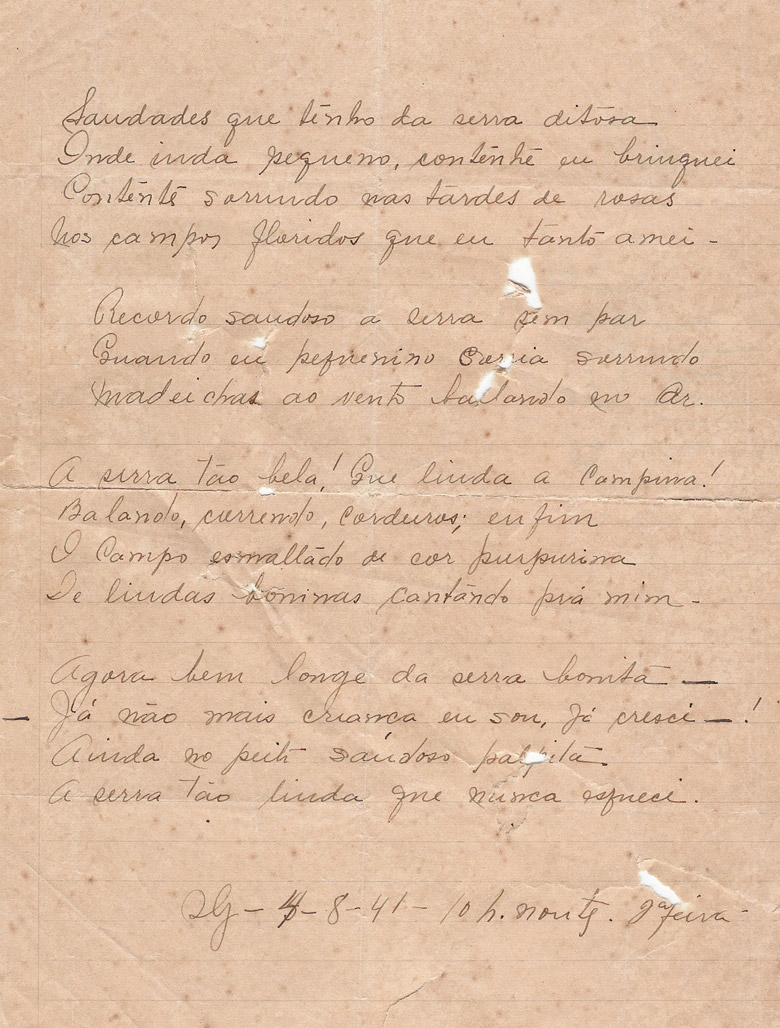 Saudades que tenho da serra ditosa
Onde inda pequeno, contente eu brinquei
Contente sorrindo nas tardes de rosas
Nos campos floridos que eu tanto amei -
Recordo saudoso a serra sem par
Quando eu pequenino corria sorrindo
Madeichas ao vento bailando no Ar.
A serra tão bela! Que linda a Campina!
Balando, correndo, cordeiros; enfim
O Campo esmaltado de cor purpurina
De lindas boninas cantando prá mim -
Agora bem longe da serra bonita —
— Já não mais criança eu sou, já cresci — !
Ainda no peito saúdoso palpita
A serra tão linda que nunca esqueci.
- 8 - 41 - 10 h. noite. 2ª feira -